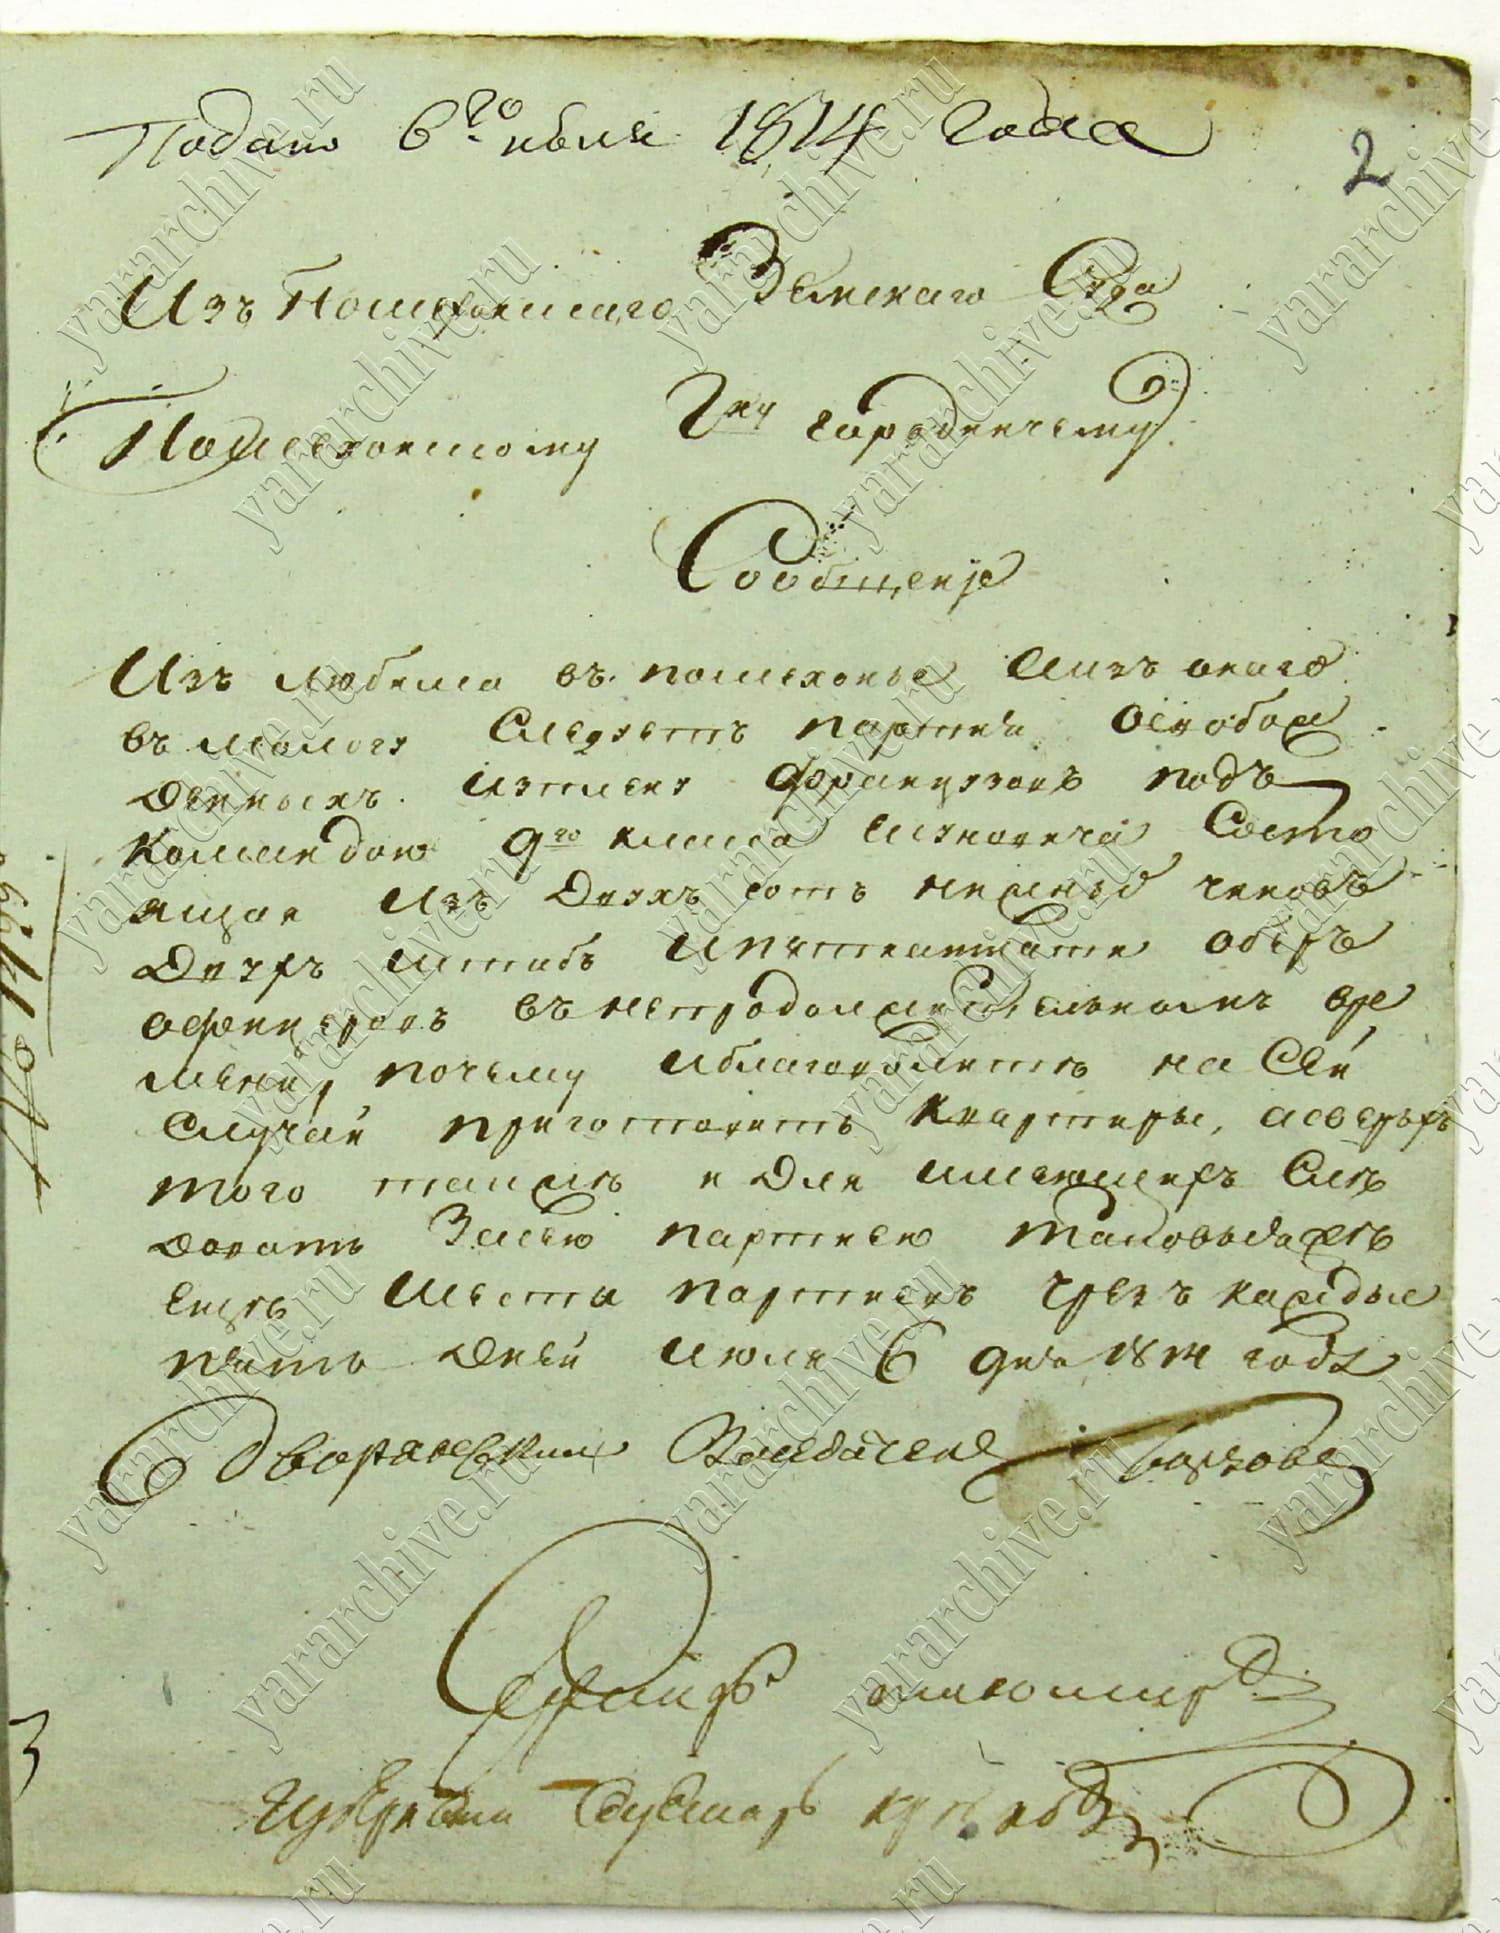 Подано 6го июля 1814 года
2
Изъ Пошехонскаго Земскаго Суда
Пошехонскому Гну городничему
Сообщение
Изъ Любима въ пошехонье Аизъ онаго
въ мологу Следуетъ партия Освобож
денныхъ изплену французовъ подъ
командою 9го класа Состо
ящая Изъ Двухъ сотъ нижныхъ чиновъ
Двухъ штабъ Ипятнатцати оберъ
офицеровъ въ непродолжительномъ вре
мени, почему Иблаговолитъ на Сей
Случай приготовить квартеры, асверьхъ
того такжъ и Для имеющихъ Слѣ
довать Засею партиею таковыхъжъ
ещѣ Шести партиевъ чрезъ каждые
пять Дней Июля 6 дня 1814 году
Дворянский Заседатель
Секретарь
Губернский
yararchive.ru